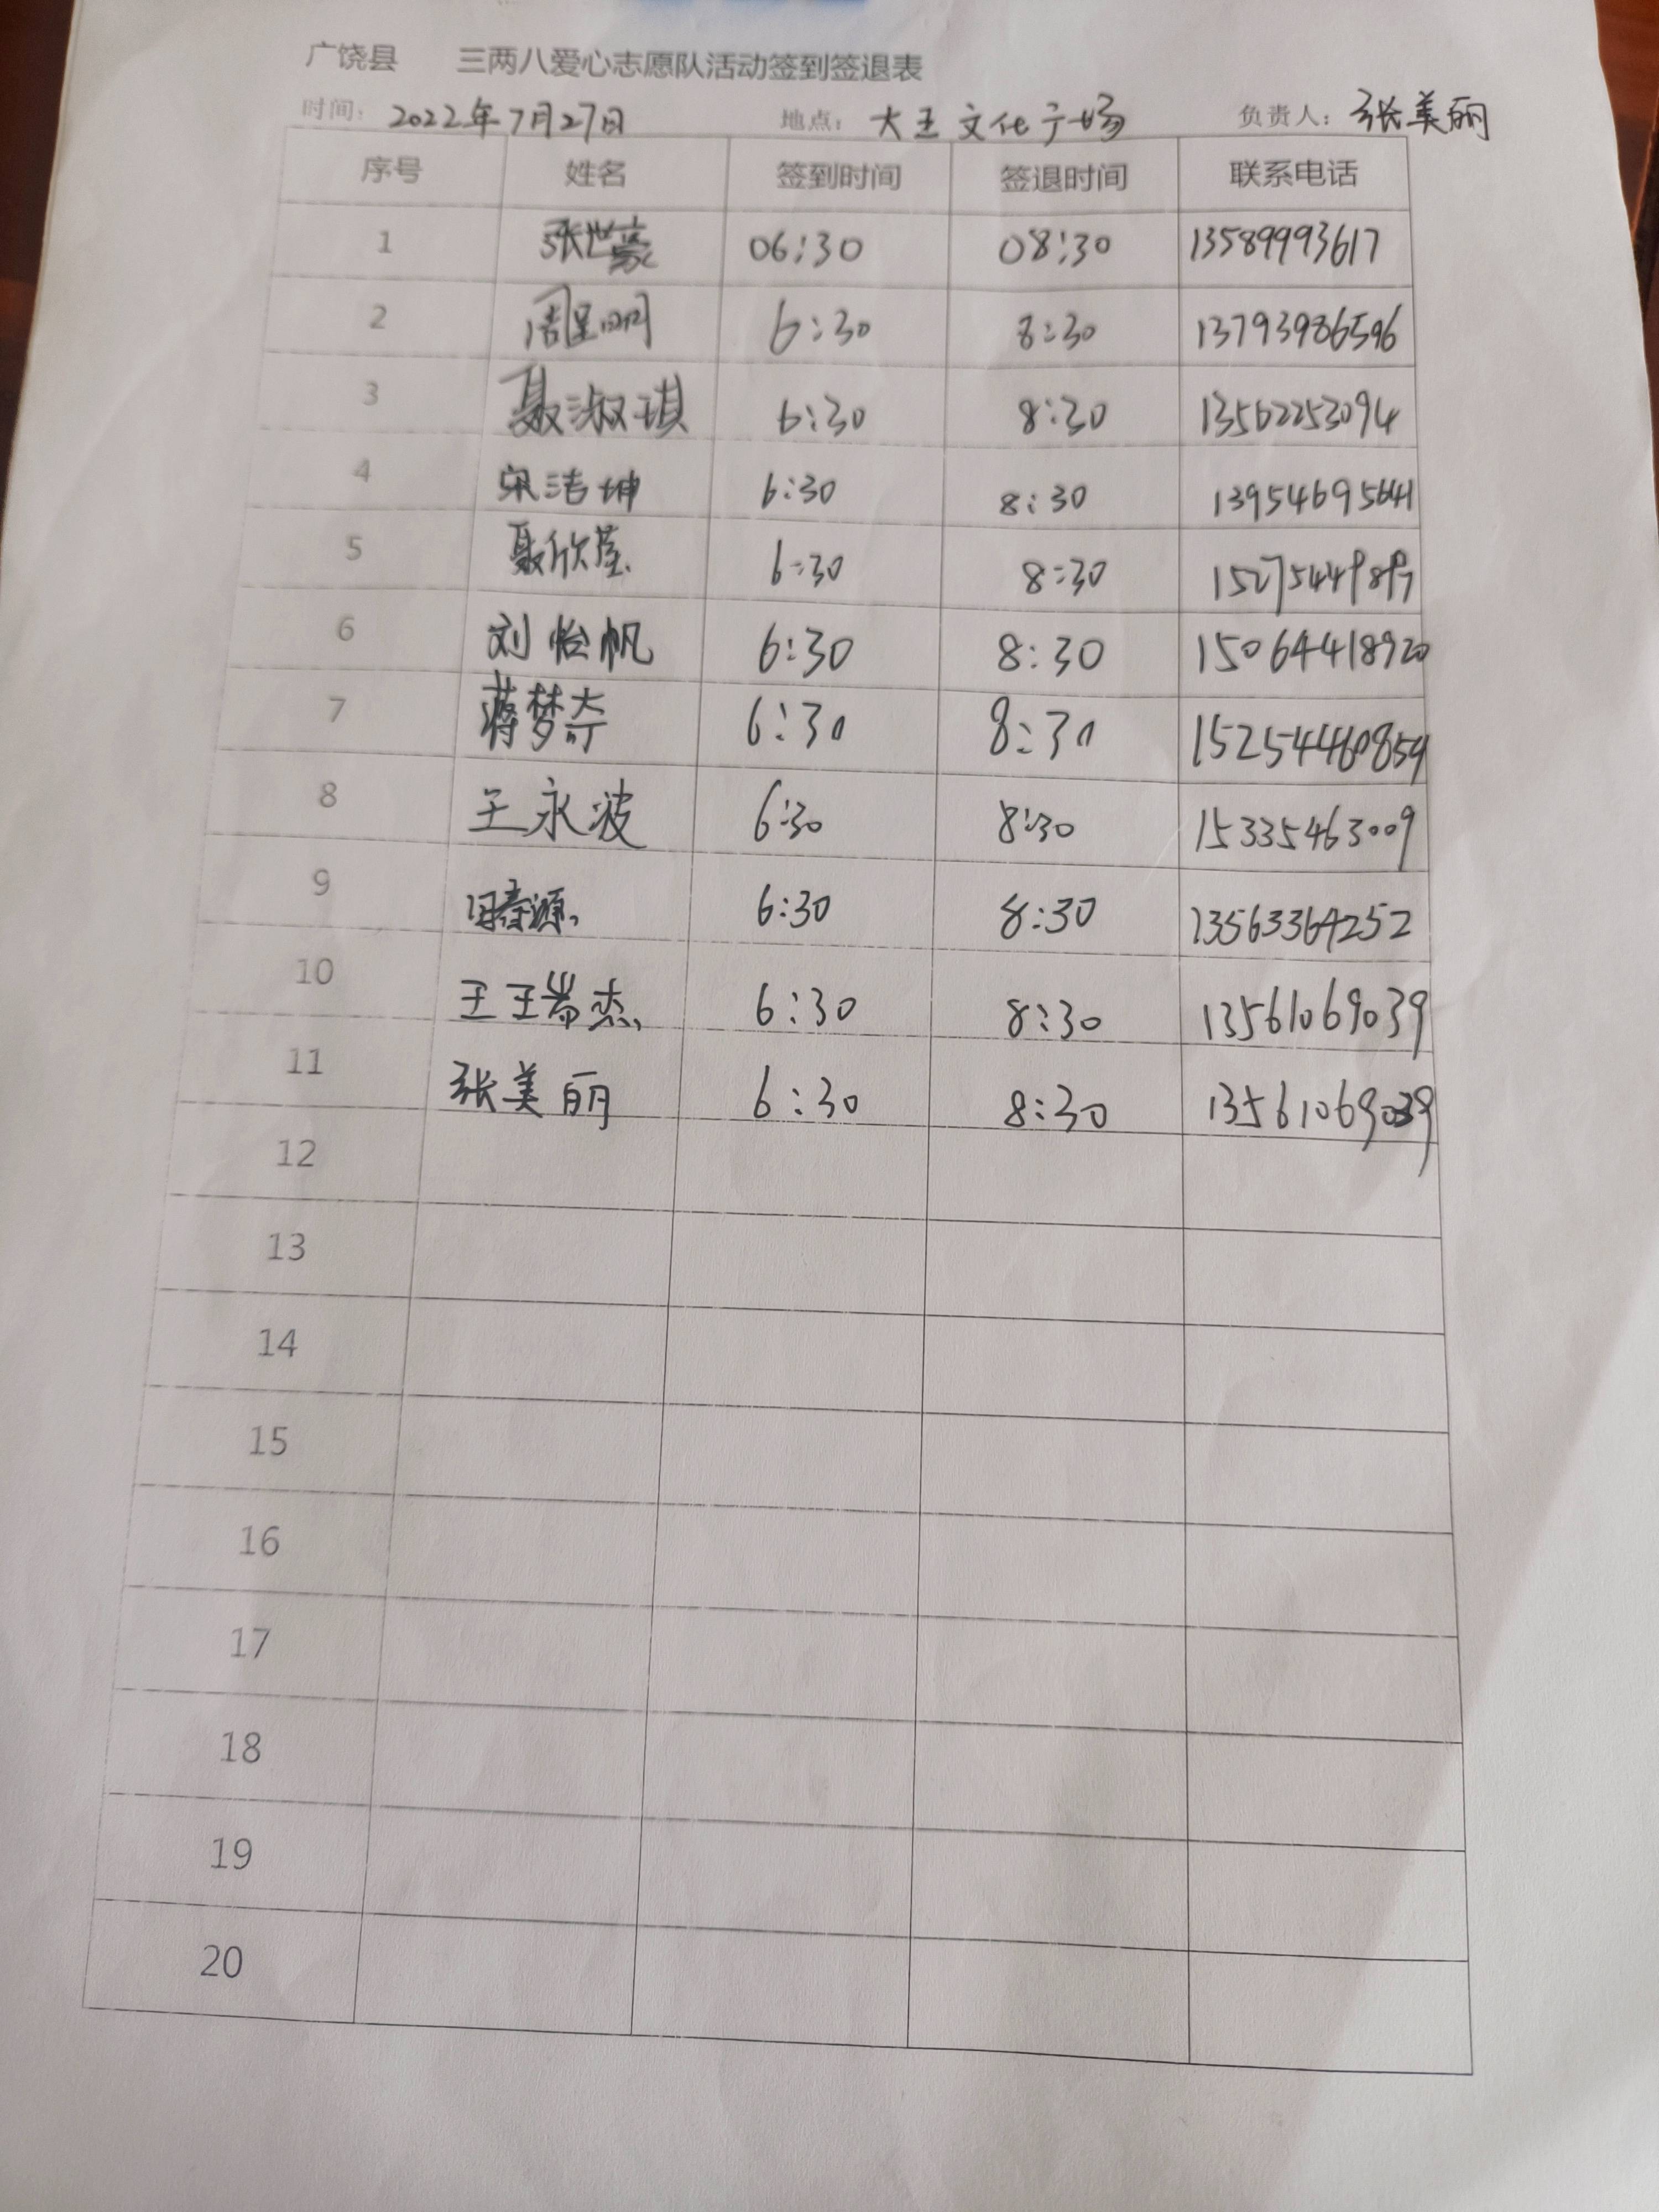 广饶县 三两八爱心志愿队活动签到签退表
时间: 2022年7月27日 地点: 大王文化广场 负责人: 张美丽
序号 姓名 签到时间 签退时间 联系电话
1 张世豪 06:30 08:30 13589993617
2 6:30 8:30 13793986596
3 聂淑琪 6:30 8:30 13562253094
4 宋洁坤 6:30 8:30 13954695641
5 6:30 8:30
6 刘怡帆 6:30 8:30 15064418920
7 蒋梦奇 6:30 8:30 15254460859
8 王永波 6:30 8:30 15335463009
9 6:30 8:30 13563364252
10 6:30 8:30 13561069039
11 张美丽 6:30 8:30 13561069039
12
13
14
15
16
17
18
19
20